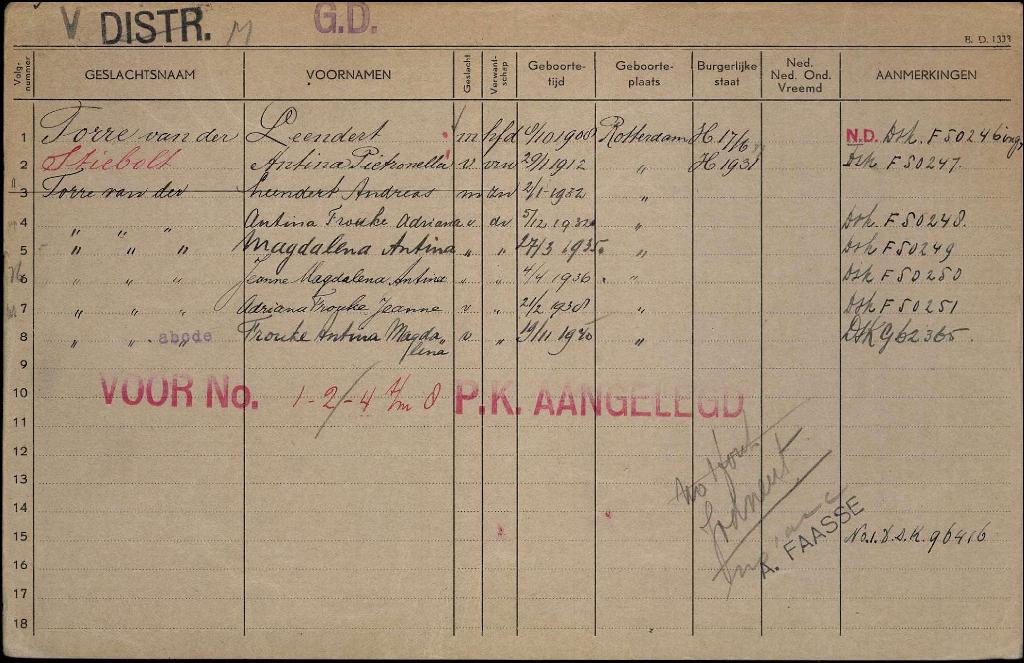 V DISTR. M G.D.
B. D. 1333
Volg-nummer GESLACHTSNAAM VOORNAMEN Geslacht Verwant-schap Geboorte-tijd Geboorte-plaats Burgerlijke staat Ned. Ned. Ond. Vreemd AANMERKINGEN
1 Torre van der Leendert m hfd 6/10 1908 Rotterdam H. 17/6 N.D. Dsk. F50246
2 Stiebelt Antina Pietronella v. vrw 29/1 1912 " H 1931 Dsk F50247.
3 Torre van der Leendert Andreas m zn 2/1 1932 "
4 " " " Antina Frouke Adriana v. dr 5/12 1932 " Dsk. F50248.
5 " " " Magdalena Antina " " 27/3 1935. " Dsk F50249
6 " " " Jeanne Magdalena Antina " " 4/4 1936 " Dsk F50250
7 " " " Adriana Frouke Jeanne v " 21/2 1938 " Dsk F50251
8 " " " abode Frouke Antina Magda- v " 19/11 1940 " DSK G62365.
lena
9
10 VOOR No. 1-2-4 t/m 8 P.K. AANGELEGD
11
12
13
14
15 A. FAASSE No.1.D.S.K. 96416
16
17
18